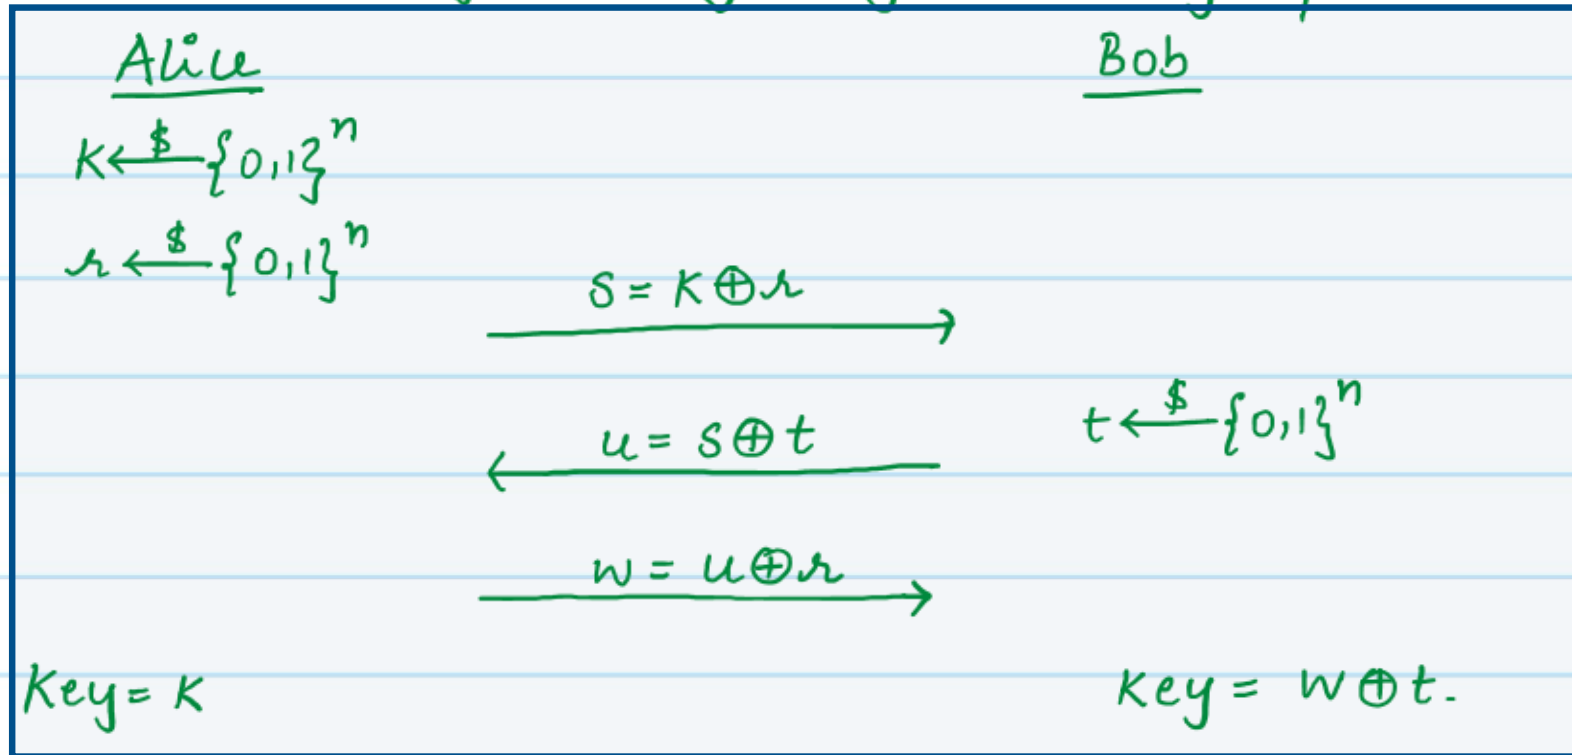 Alice Bob
K ←$ {0,1}^n
r ←$ {0,1}^n
S = K⊕r
t ←$ {0,1}^n
u = S⊕t
w = u⊕r
Key = K Key = W⊕t.